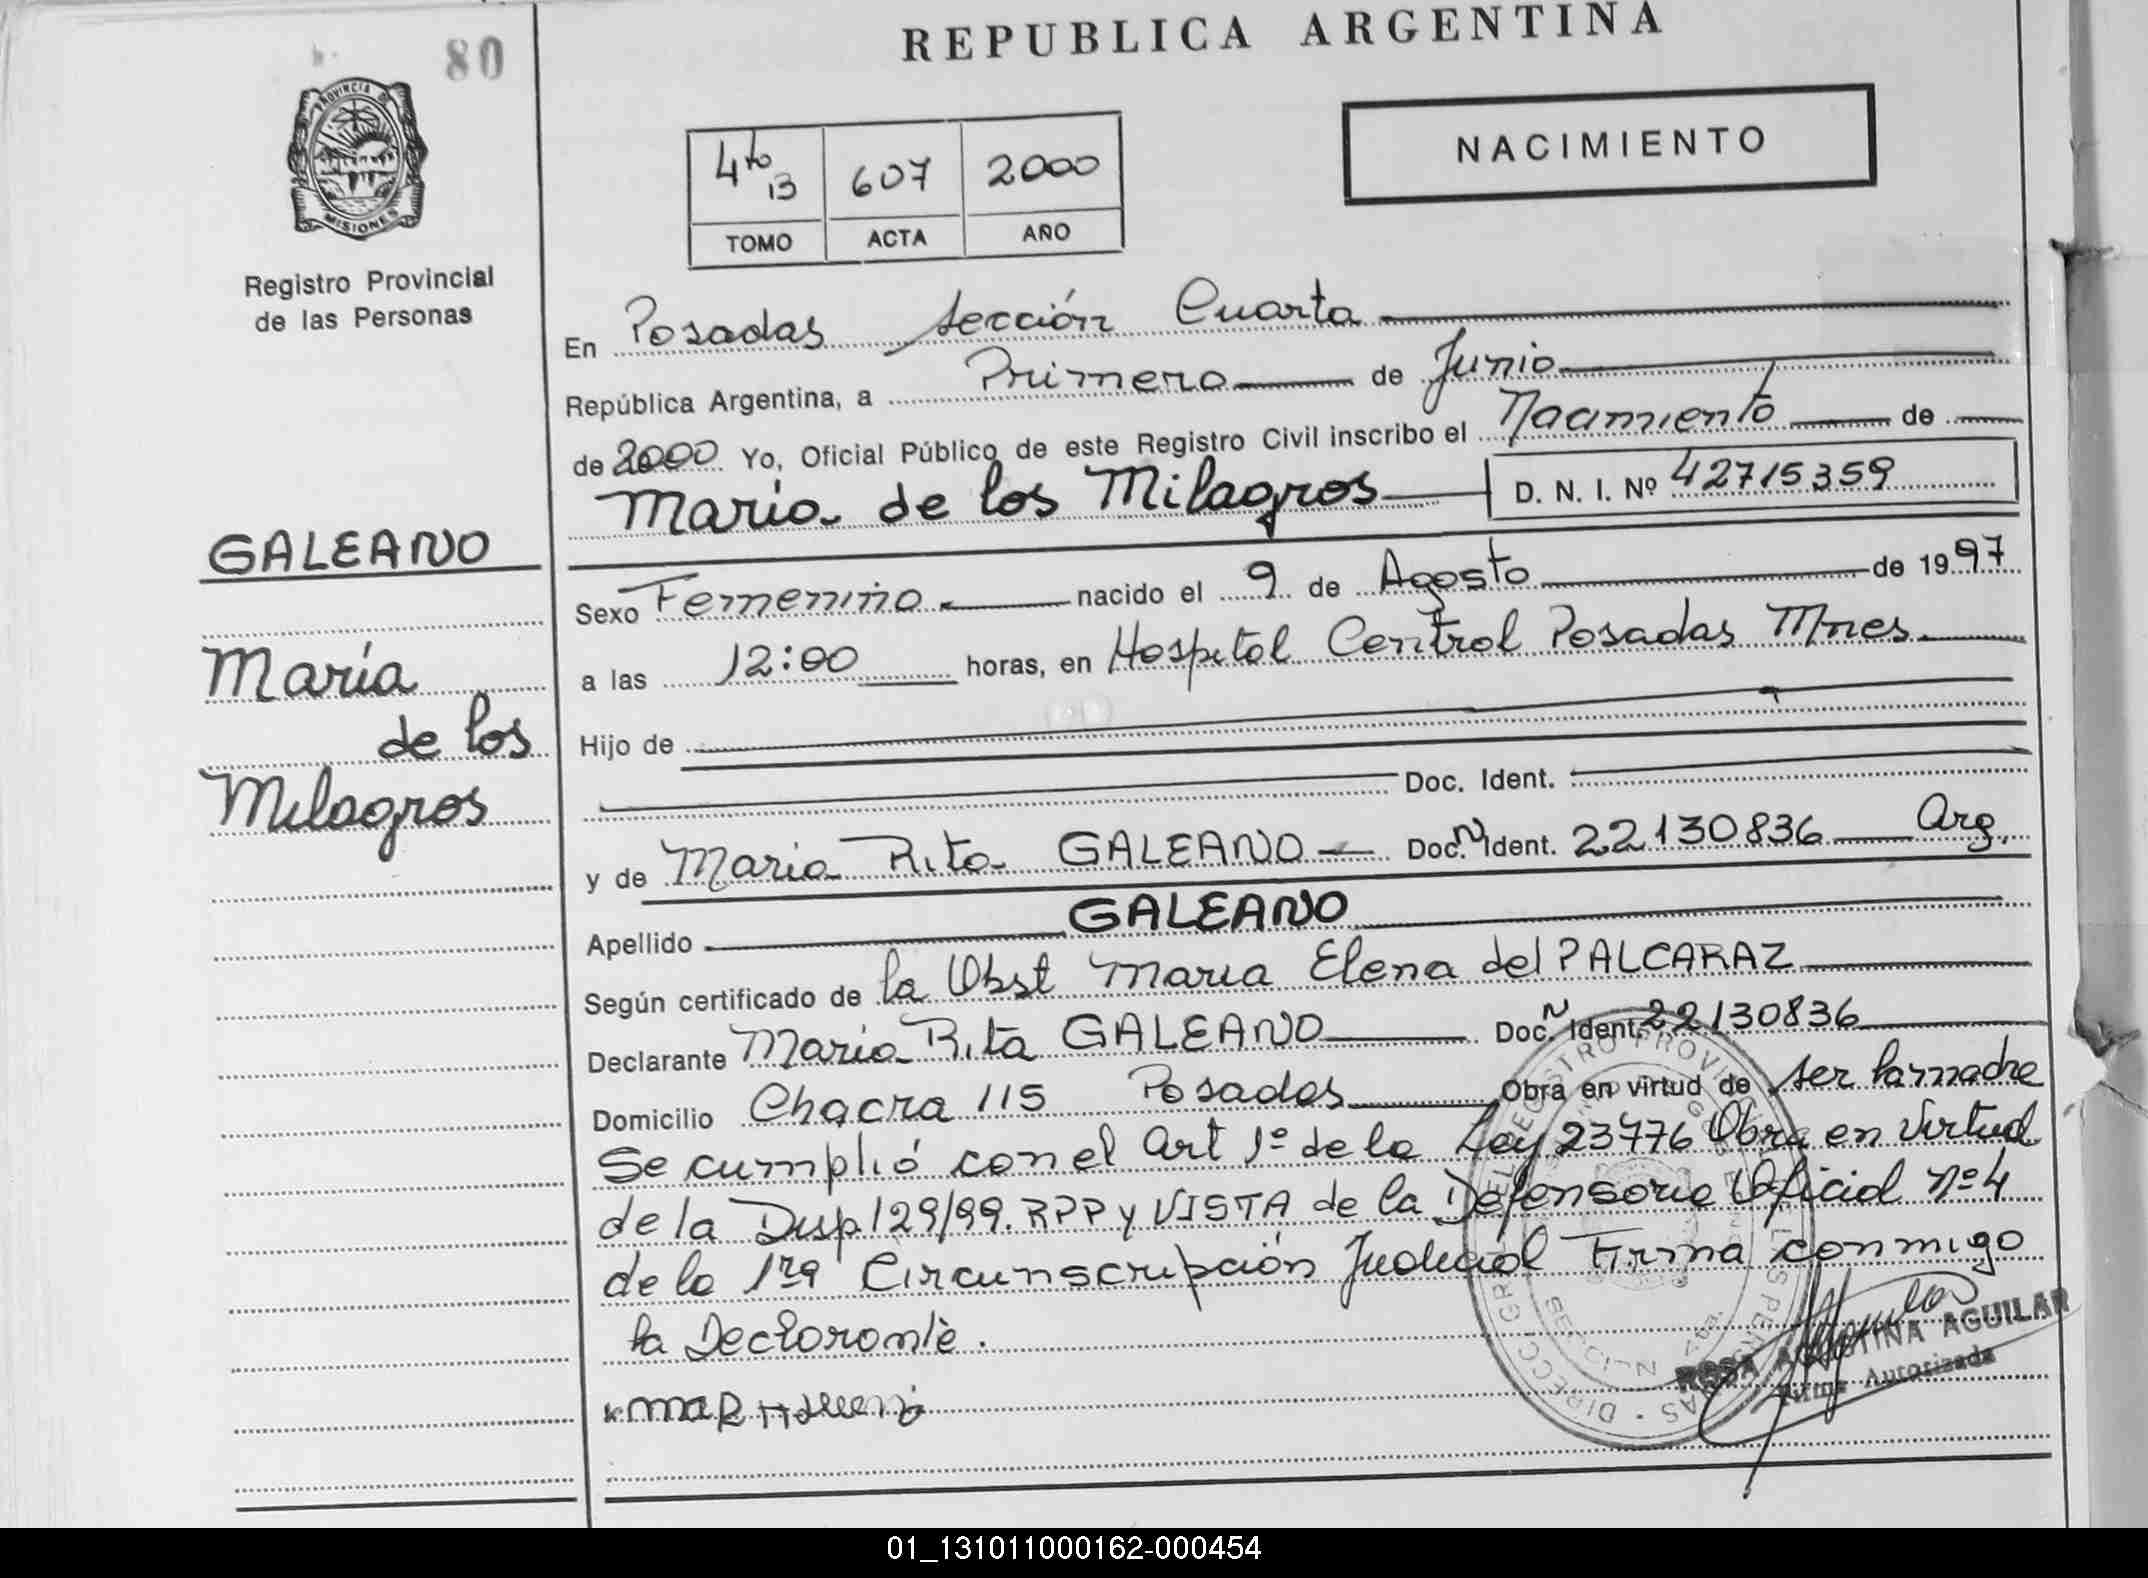 80
REPUBLICA ARGENTINA
PROVINCIA DE
MISIONES
Registro Provincial
de las Personas
4to 13 607 2000
TOMO ACTA AÑO
NACIMIENTO
En Posadas Sección Cuarta
República Argentina, a Primero de Junio
de 2000 Yo, Oficial Público de este Registro Civil inscribo el Nacimiento de
María de los Milagros D. N. I. Nº 42715359
GALEANO
María
de los
Milagros
Sexo Femenino nacido el 9 de Agosto de 1997
a las 12:00 horas, en Hospital Central Posadas Mnes.
Hijo de
Doc. Ident.
y de Maria Rita GALEANO Doc. N Ident. 22130836 Arg.
Apellido GALEANO
Según certificado de la Obst Maria Elena del P ALCARAZ
Declarante Maria Rita GALEANO Doc. N Ident. 22130836
Domicilio Chacra 115 Posadas Obra en virtud de ser la madre
Se cumplió con el Art 1º de la Ley 23776 Obra en Virtud
de la Disp 129/99. RPP y VISTA de la Defensoria Oficial Nº 4
de la 1ra Circunscripción Judicial Firma conmigo
la Declarante.
ROSA AGUSTINA AGUILAR
Firma Autorizada
01_131011000162-000454